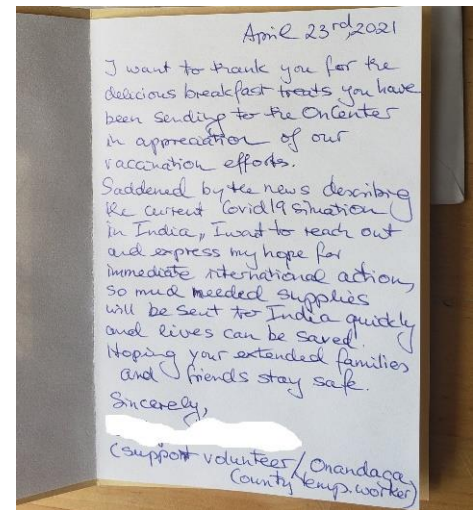 April 23rd, 2021
I want to thank you for the
delicious breakfast treats you have
been sending to the OnCenter
in appreciation of our
vaccination efforts.
Saddened by the news describing
the current Covid19 situation
in India, I want to reach out
and express my hope for
immediate international action,
so much needed supplies
will be sent to India quickly
and lives can be saved!
Hoping your extended families
and friends stay safe.
Sincerely,
(support volunteer/Onandaga
County temp.worker)